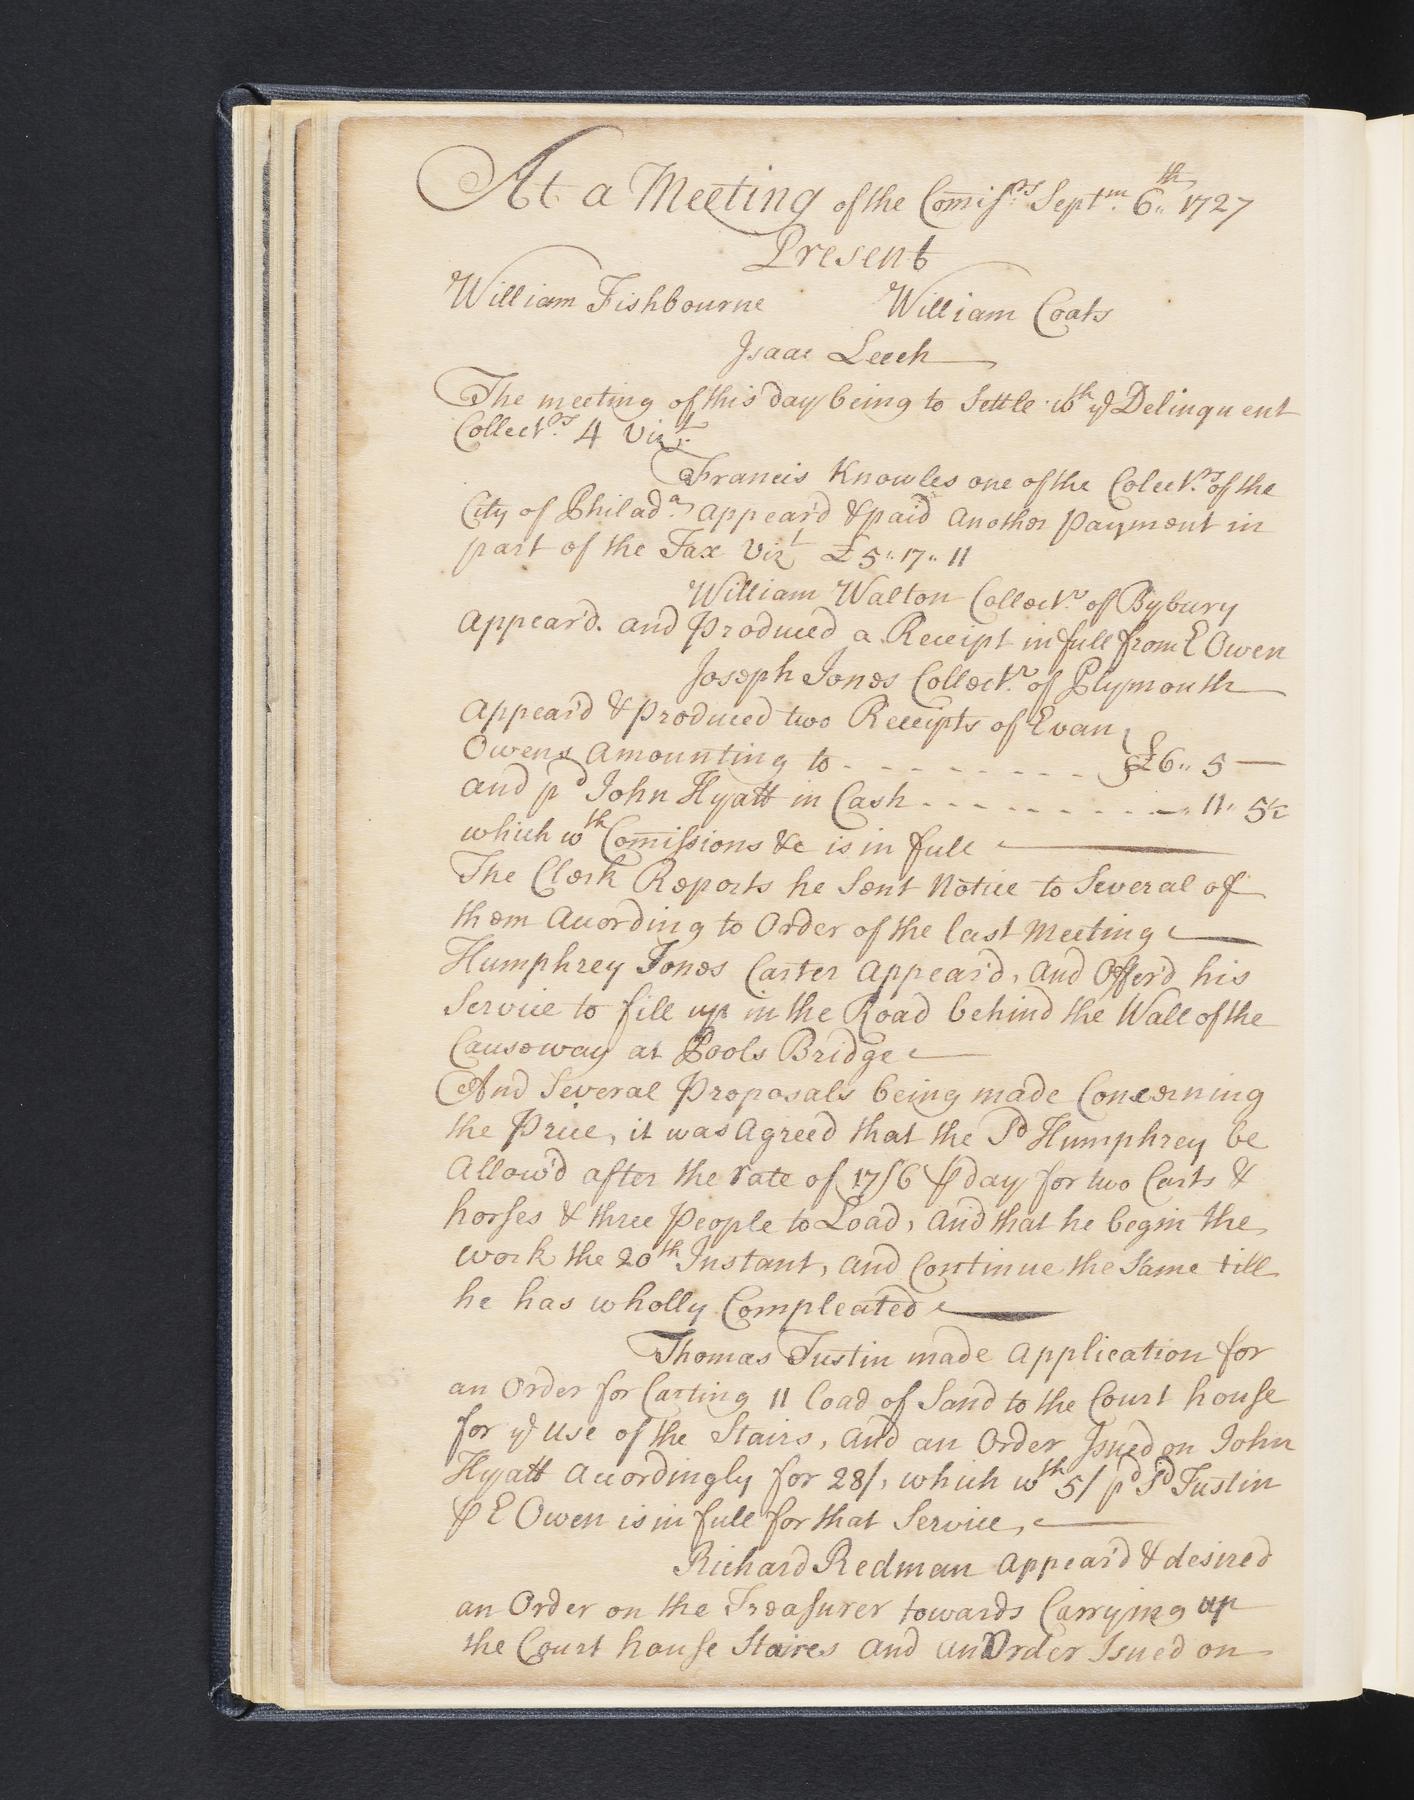 At a Meeting of the Comiss.rs Septm. 6th 1727
Present
William Fishbourne William Coats
Isaac Leech
The meeting of this day being to Settle wth ye Delinquent
Collectrs 4 vizt.
Francis Knowles one of the Colectrs. of the
City of Philada. appear'd & paid another payment in
part of the Tax vizt £5"17"11
William Walton Collectr. of Bybury
appear'd. and produced a Receipt in full from E Owen
Joseph Jones Collectr. of Plymouth
appear'd & produced two Receipts of Evan
Owens amounting to - - - - - - - - - £6" 5 —
and pd John Hyatt in Cash - - - - - - - - - " 11" 5½
which wth Comissions &c is in full
The Clerk Reports he Sent Notice to Several of
them according to Order of the last Meeting
Humphrey Jones Carter appear'd, and Offer'd his
Service to fill up in the Road behind the Wall of the
Causeway at Pools Bridge
And Several Proposals being made Concerning
the Price, it was agreed that the Sd Humphrey be
allow'd after the rate of 17/6 ⅌ day for two Carts &
horses & three people to Load, and that he begin the
work the 20th Instant, and Continue the Same till
he has wholly Compleated
Thomas Tustin made application for
an Order for Carting 11 load of Sand to the Court house
for ye use of the Stairs, and an Order Issued on John
Hyatt accordingly for 28/, which wth 5/ pd Sd Tustin
⅌ E Owen is in full for that Service,
Richard Redman appear'd & desired
an Order on the Treasurer towards Carrying up
the Court house Staires and an Order Issued on